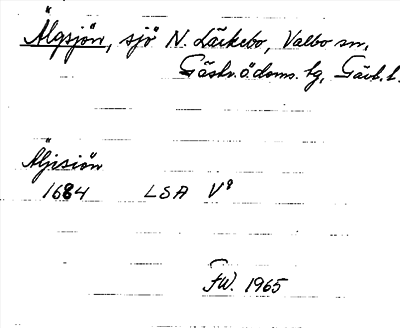 Älgsjön, sjö N. Läckebo, Valbo sn,
Gästr. ö. doms. tg, Gävb. l.
Äljsiön
1684 LSA V9
FW. 1965